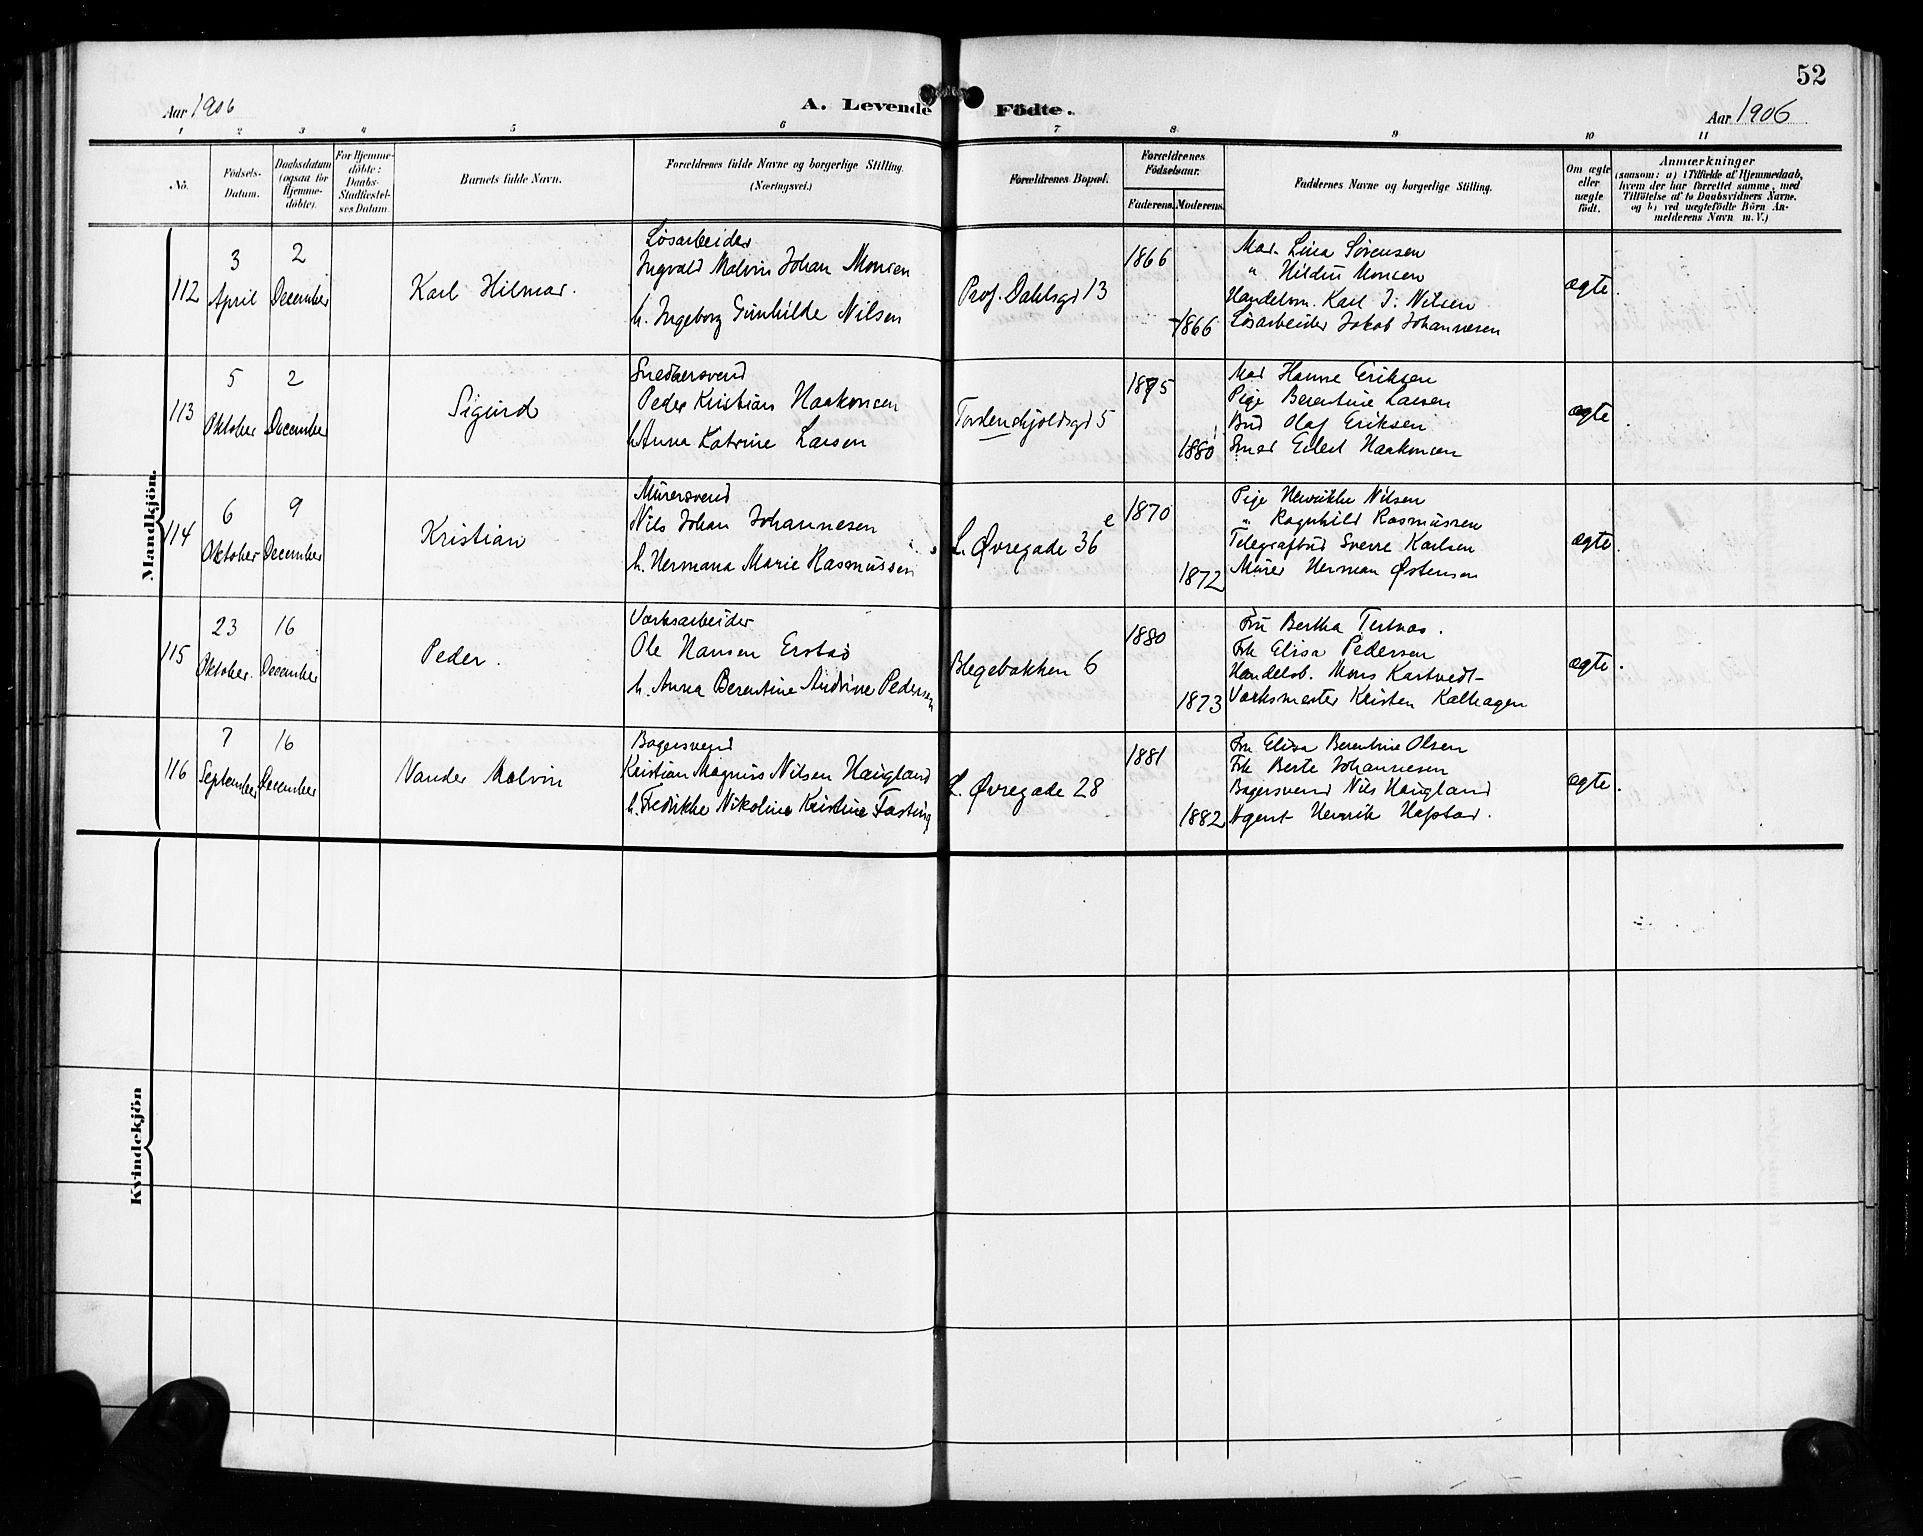 52
Aar 1906
A. Levende Födte.
Aar 1906
1 2 3 4 5 6 7 8 9 10 11
No.
Födsels-Datum.
Daabsdatum (ogsaa for Hjemme-döbte).
For Hjemme-döbte: Daabs-Stadfæstel-ses Datum.
Barnets fulde Navn.
Forældrenes fulde Navne og borgerlige Stilling. (Næringsvei.)
Forældrenes Bopæl.
Forældrenes Födselsaar.
Faderens. Moderens.
Faddernes Navne og borgerlige Stilling.
Om ægte eller uægte födt.
Anmærkninger
(saasom: a) i Tilfælde af Hjemmedaab,
hvem der har forrettet samme, med
Tilföielse af to Daabsvidners Navne,
og b) ved uægtefödte Börn An-
melderens Navn m. V.)
Mandkjön.
112
3 April
2 December
Karl Hilmar.
Løsarbeider
Ingvald Malvin Johan Monsen
h. Ingeborg Gunhilde Nilsen
Prof. Dahlsgd 13
1866
1866
Mad. Lina Sørensen
" Hildur Monsen
Handelsm. Karl J. Nilsen
Løsarbeider Jakob Johannesen
ægte.
113
5 Oktober
2 December
Sigurd
Snedkersvend
Peder Kristian Haakonsen
h. Anna Katrine Larsen
Tordenskjoldsgd 5
1875
1880
Mad Hanne Eriksen
Pige Berentine Larsen
Bud Olaf Eriksen
Smed Eilert Haakonsen
ægte.
114
6 Oktober
9 December
Kristian
Murersvend
Nils Johan Johannesen
h. Hermana Marie Rasmussen
L. Øvregade 36 e
1870
1872
Pige Henrikke Nilsen
" Ragnhild Rasmussen
Telegrafbud Sverre Karlsen
Murer Herman Østensen
ægte.
115
23 Oktober.
16 December
Peder.
Værksarbeider
Ole Hansen Erstad
h. Anna Berentine Andrine Pedersen
Blegebakken 6
1880
1873
Fru Bertha Tertnæs.
Frk Elisa Pedersen
Handelsb. Mons Kartvedt
Værksmester Kristen Kalhagen
ægte.
116
7 September
16 December
Vander Malvin
Bagersvend
Kristian Magnus Nilsen Haugland
h. Fredrikke Nikoline Kristine Fasting
L. Øvregade 28
1881
1882
Fru Elisa Berentine Olsen
Frk Berte Johannesen
Bagersvend Nils Haugland
Agent Henrik Hofstad.
ægte.
Kvindekjön